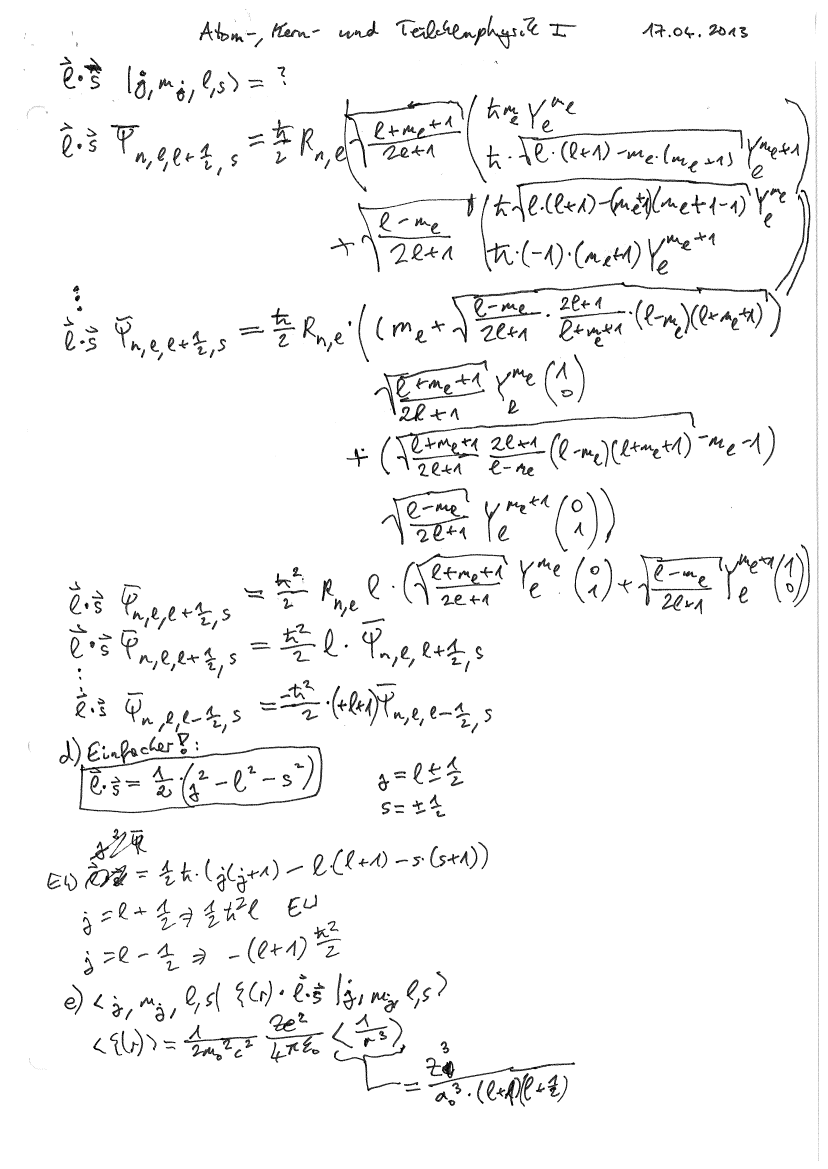 Atom-, Kern- und Teilchenphysik I 17.04.2013
$\vec{l}\cdot\vec{s}$ $|j, m_j, l, s\rangle = ?$
$\vec{l}\cdot\vec{s}\ \overline{\Psi}_{n,l,l+\frac{1}{2},s} = \frac{\hbar}{2} R_{n,l} \left( \sqrt{\frac{l+m_l+1}{2l+1}} \begin{pmatrix} \hbar m_l Y_l^{m_l} \\ \hbar\cdot\sqrt{l\cdot(l+1)-m_l\cdot(m_l+1)}\, Y_l^{m_l+1} \end{pmatrix} \right.$
$\left. + \sqrt{\frac{l-m_l}{2l+1}} \begin{pmatrix} \hbar\sqrt{l\cdot(l+1)-(m_l+1)(m_l+1-1)}\, Y_l^{m_l} \\ \hbar\cdot(-1)\cdot(m_l+1) Y_l^{m_l+1} \end{pmatrix} \right)$
⋮
$\vec{l}\cdot\vec{s}\ \overline{\Psi}_{n,l,l+\frac{1}{2},s} = \frac{\hbar}{2} R_{n,l}\cdot \Big( \big(m_l + \sqrt{\frac{l-m_l}{2l+1}\cdot\frac{2l+1}{l+m_l+1}\cdot(l-m_l)(l+m_l+1)}\big)$
$\sqrt{\frac{l+m_l+1}{2l+1}}\, Y_l^{m_l} \begin{pmatrix} 1 \\ 0 \end{pmatrix}$
$+ \big(\sqrt{\frac{l+m_l+1}{2l+1}\frac{2l+1}{l-m_l}(l-m_l)(l+m_l+1)} - m_l - 1\big)$
$\sqrt{\frac{l-m_l}{2l+1}}\, Y_l^{m_l+1} \begin{pmatrix} 0 \\ 1 \end{pmatrix} \Big)$
$\vec{l}\cdot\vec{s}\ \overline{\Psi}_{n,l,l+\frac{1}{2},s} = \frac{\hbar^2}{2} R_{n,l}\, l\cdot \Big( \sqrt{\frac{l+m_l+1}{2l+1}}\, Y_l^{m_l} \begin{pmatrix} 0 \\ 1 \end{pmatrix} + \sqrt{\frac{l-m_l}{2l+1}}\, Y_l^{m_l+1} \begin{pmatrix} 1 \\ 0 \end{pmatrix} \Big)$
$\vec{l}\cdot\vec{s}\ \overline{\Psi}_{n,l,l+\frac{1}{2},s} = \frac{\hbar^2}{2} l\cdot \overline{\Psi}_{n,l,l+\frac{1}{2},s}$
⋮
$\vec{l}\cdot\vec{s}\ \overline{\Psi}_{n,l,l-\frac{1}{2},s} = \frac{-\hbar^2}{2}\cdot(+l+1)\overline{\Psi}_{n,l,l-\frac{1}{2},s}$
d) Einfacher!:
$\vec{l}\cdot\vec{s} = \frac{1}{2}\cdot(j^2 - l^2 - s^2)$ $j = l \pm \frac{1}{2}$
$s = \pm\frac{1}{2}$
EW $= \frac{1}{2}\hbar\cdot(j(j+1) - l\cdot(l+1) - s\cdot(s+1))$
$j = l + \frac{1}{2} \Rightarrow \frac{1}{2}\hbar^2 l$ EW
$j = l - \frac{1}{2} \Rightarrow -(l+1)\frac{\hbar^2}{2}$
e) $\langle j, m_j, l, s| \xi(r)\cdot\vec{l}\cdot\vec{s}\, |j, m_j, l, s\rangle$
$\langle\xi(r)\rangle = \frac{1}{2m_0^2c^2}\frac{Ze^2}{4\pi\varepsilon_0}\langle\frac{1}{r^3}\rangle$
$= \frac{Z^3}{a_0^3\cdot(l+1)(l+\frac{1}{2})}$